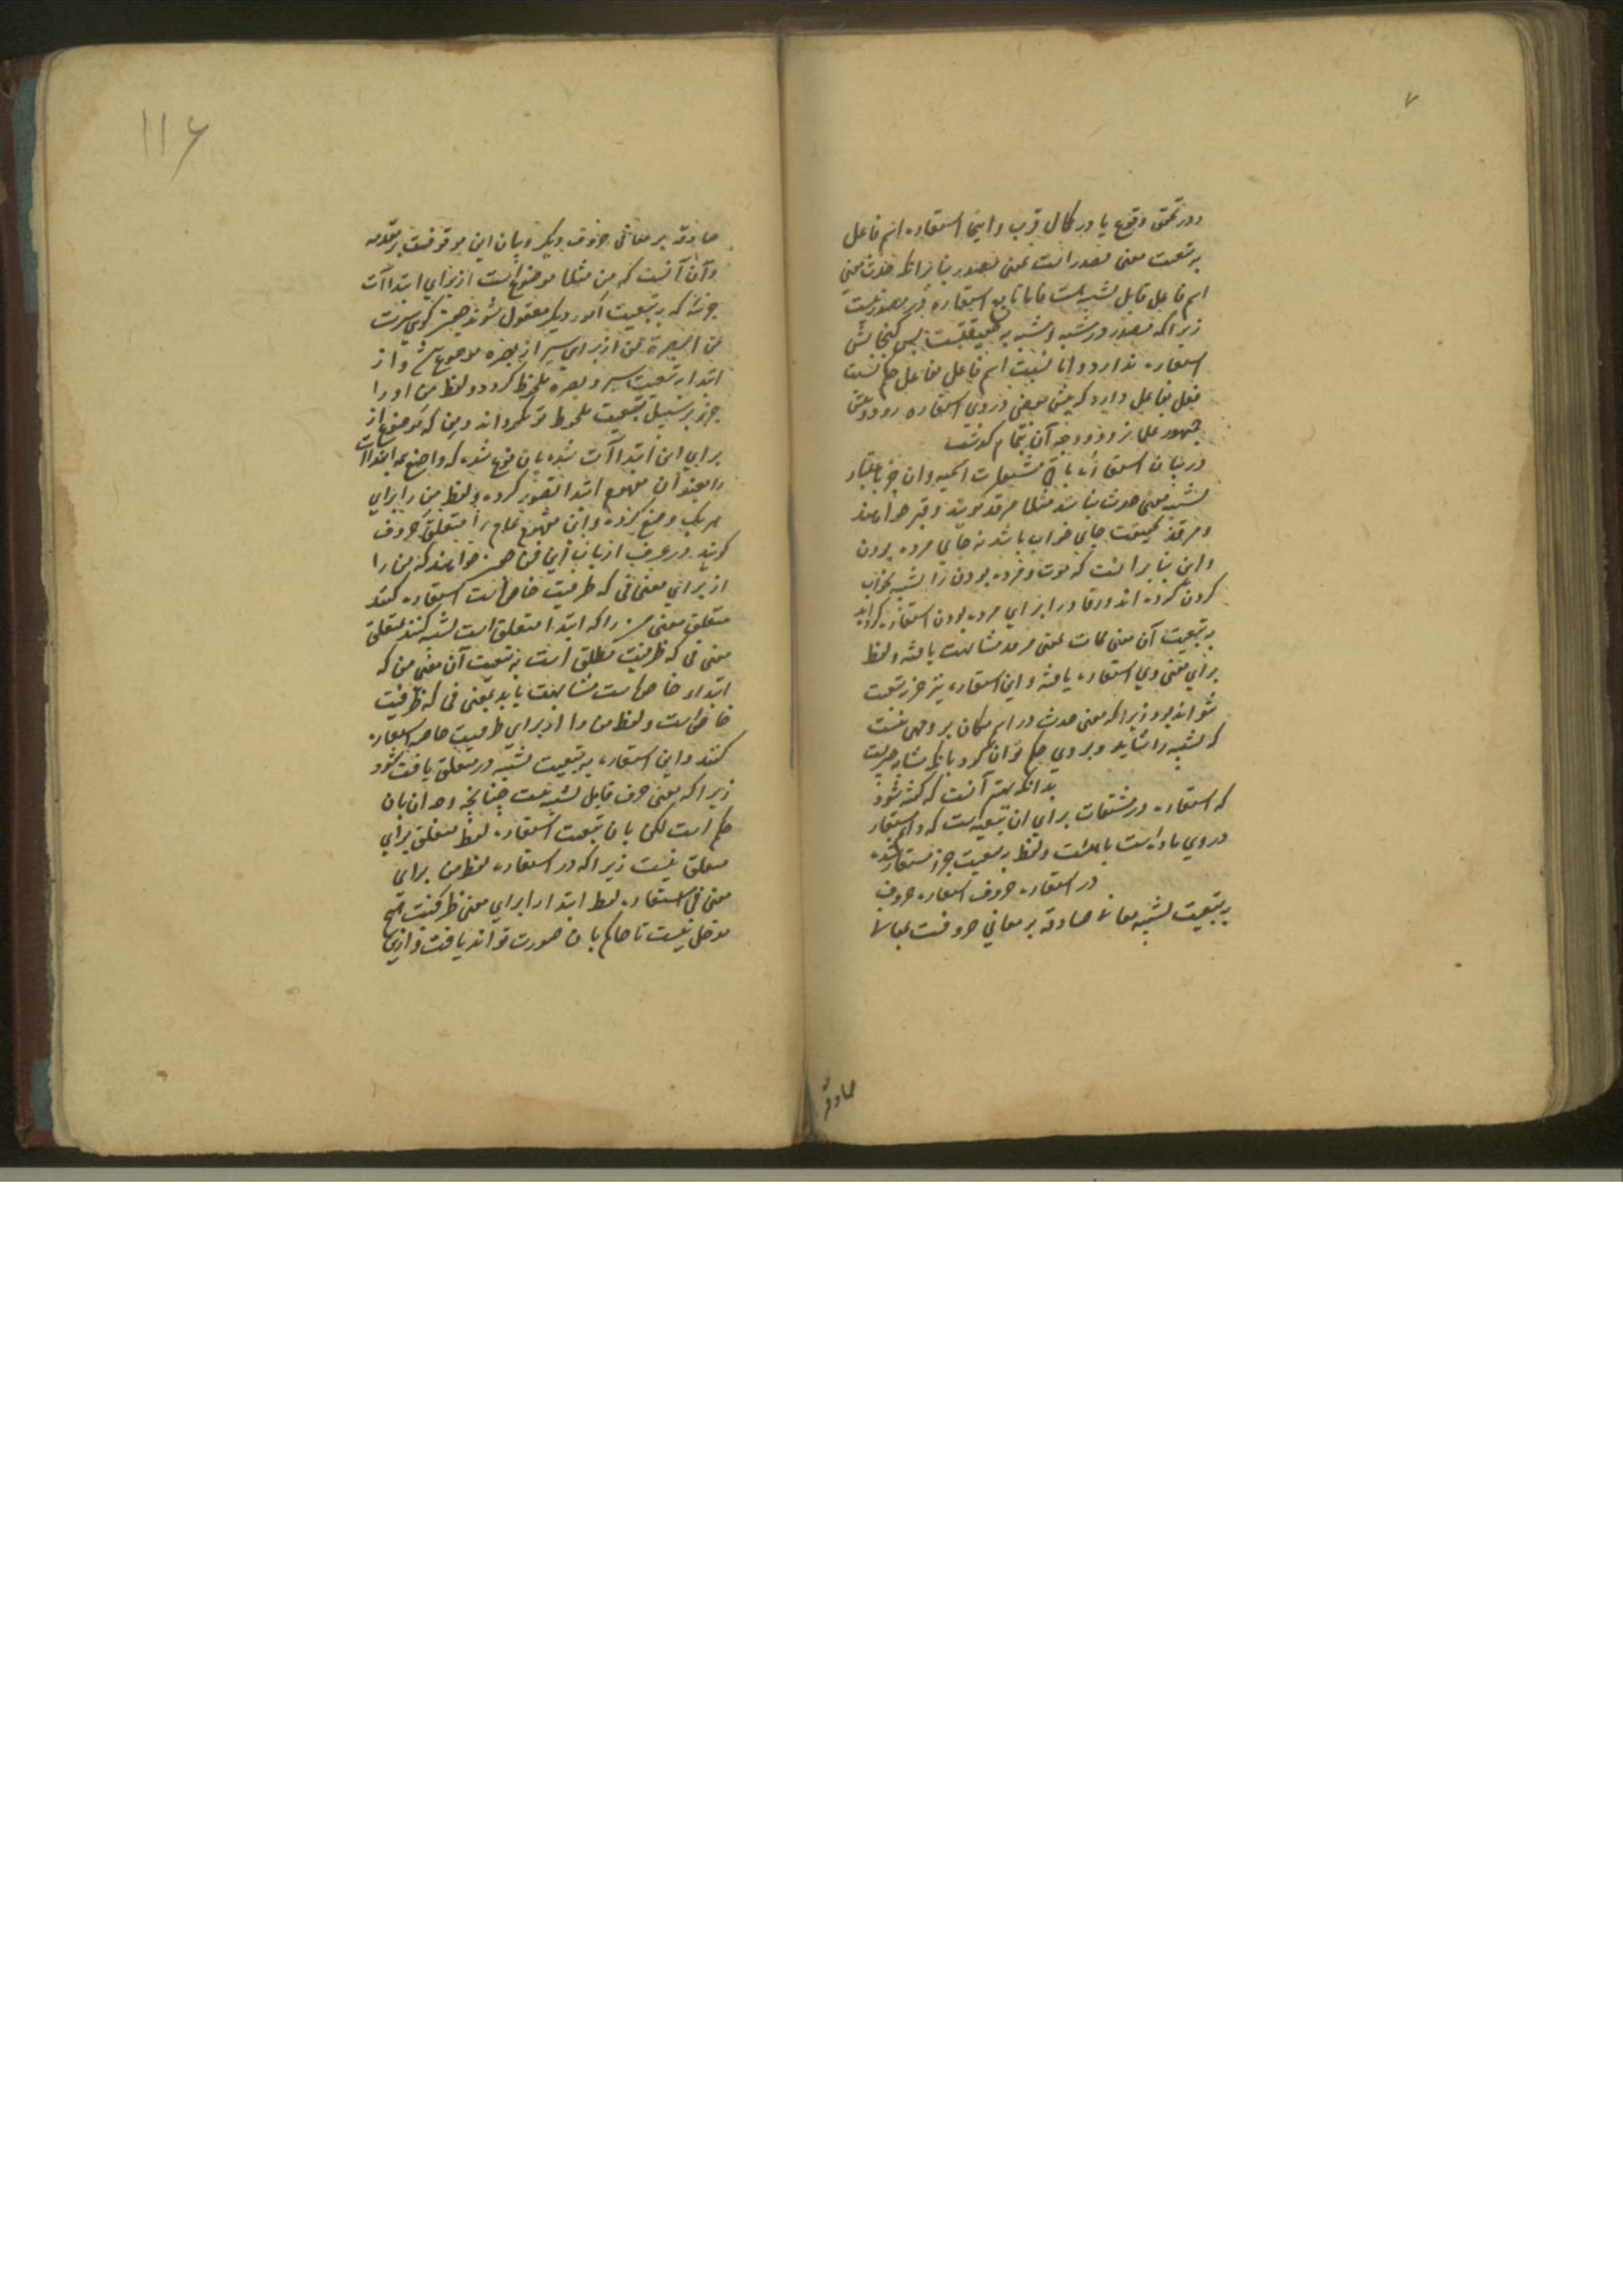 ۷
ودر تحقق وقوع یا در کمال قرب و اینجا استعاره اسم فاعل
به تبعیت معنی مصدر است بمعنی مصدر بنا بر آنکه حدث معنی
اسم فاعل قابل تشبیه است فاما تابع استعاره دیگر مصدر نیست
زیرا که مصدر در مشبه و مشبه به حقیقتست پس گنجایش
استعاره ندارد و اما نسبت اسم فاعل بفاعل حکم نسبت
فعل بفاعل دارد که پیش بعضی در وی استعاره رود و پیش
جمهور علما نرود و وجه آن بتمام گذشت
در بیان استعاره باقی مشتقات اسمیه و آن جز باعتبار
تشبیه معنی حدث نباشد مثلا مرقد گویند و قبر خواهند
و مرقد بحقیقت جای خواب باشد نه جای مرده بودن
و این بنا بر آنست که موت و مرده بودن را تشبیه بخواب
کردن کرده اند و رقاد را برای مرده بودن استعاره کرده اند
به تبعیت آن معنی ممات بمعنی مرقد مشابهت یافته و لفظ
برای معنی وی استعاره یافته و این استعاره نیز جز به تبعیت
نتواند بود زیرا که معنی حدث در اسم مکان بر وجهی نیست
که تشبیه را شاید و بر وی حکم توان کرد بآنکه مشارکست
بدانکه بهتر آنست که گفته شود
که استعاره در مشتقات برای آن تبعیه است که در اسم استعاره
در وی ماده است باصالت و لفظ به تبعیت جزو مستعار شده
در استعاره حروف استعاره حروف
به تبعیت تشبیه معانی صادقه بر معانی حروفست بمعانی
صادقه
۱۱۶
صادقه بر معانی حروف دیگر و بیان این موقوفست بر مقدمه
و آن آنست که من مثلا موضوع است از برای ابتداآت
جزئیه که به تبعیت امور دیگر معقول شوند همچنین گوی سرت
من البصرة من از برای سیر از بصره موضوعست و از
ابتدا به تبعیت سیر و بصره ملحوظ گردد و لفظ من او را
جز بر سبیل تبعیت ملحوظ نگرداند و من که موضوع از
برای این ابتداآت شده بآن نوع شده که واضع همه ابتداآت
را بعنوان مفهوم ابتدا تصور کرده و لفظ من را برای
هر یک وضع کرده و این مفهوم عام را متعلق حروف
گویند در عرف ارباب این فن چون خواهند که من را
از برای معنی فی که ظرفیت خاص است استعاره کنند
متعلق معنی من را که ابتدا متعلق است تشبیه کنند بمتعلق
معنی فی که ظرفیت مطلق است به تبعیت آن معنی من که
ابتداء خاص است مشابهت یابد بمعنی فی که ظرفیت
خاص است و لفظ من را از برای ظرفیت خاصه استعاره
کنند و این استعاره به تبعیت تشبیه در متعلق یافت شود
زیرا که معنی حرف قابل تشبیه نیست چنانچه وجدان بآن
حکم است لکن بآن تبعیت استعاره لفظ متعلق برای
متعلق نیست زیرا که در استعاره لفظ من برای
معنی فی استعاره لفظ ابتدا را برای معنی ظرفیت هیچ
مدخل نیست تا حاکم بآن صورت تواند یافت و ازین